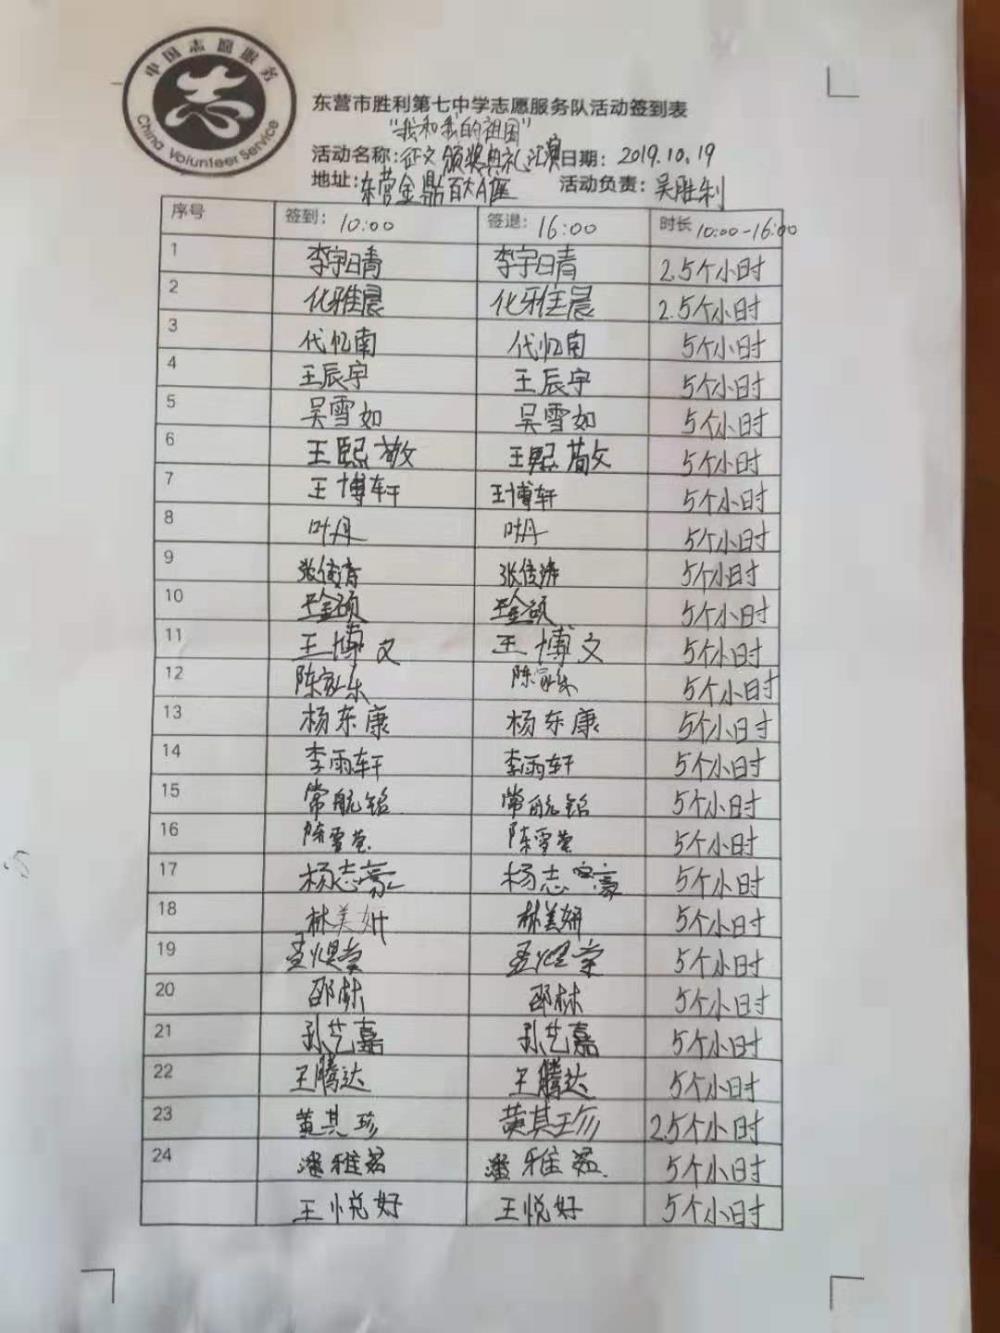 中国志愿服务
China Volunteer Service
东营市胜利第七中学志愿服务队活动签到表
"我和我的祖国"
活动名称:征文颁奖典礼汇演日期: 2019.10.19
地址:东营金鼎百大A座 活动负责:吴胜利
序号 签到: 10:00 签退: 16:00 时长 10:00-16:00
1 李宇晴 李宇晴 2.5个小时
2 化雅晨 化雅晨 2.5个小时
3 代忆南 代忆南 5个小时
4 王辰宇 王辰宇 5个小时
5 吴雪如 吴雪如 5个小时
6 王熙 王熙 5个小时
7 王博轩 王博轩 5个小时
8 叶丹 叶丹 5个小时
9 张俊涛 张俊涛 5个小时
10 王金硕 王金硕 5个小时
11 王博文 王博文 5个小时
12 陈家乐 陈家乐 5个小时
13 杨东康 杨东康 5个小时
14 李雨轩 李雨轩 5个小时
15 常航铭 常航铭 5个小时
16 陈雪莹 陈雪莹 5个小时
17 杨志豪 杨志豪 5个小时
18 林美妍 林美妍 5个小时
19 5个小时
20 邵林 邵林 5个小时
21 孙艺嘉 孙艺嘉 5个小时
22 王腾达 王腾达 5个小时
23 黄其珍 黄其珍 2.5个小时
24 潘雅茹 潘雅茹 5个小时
王悦好 王悦好 5个小时